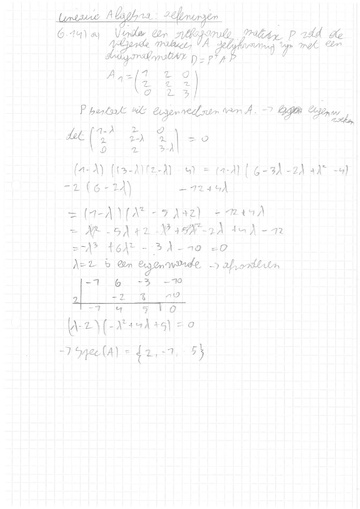 Lineaire Algebra oefeningen
6.14) a) Vinden een orthogonale matrix P zdd de
volgende matrices A gelijkvormig zijn met een
diagonaalmatrix D = P^T A P
A_1 = (1 2 0
2 2 2
0 2 3)
P bestaat uit eigenvectoren van A. →
det (1-λ 2 0
2 2-λ 2
0 2 3-λ) = 0
(1-λ) ((3-λ)(2-λ) 4) = (1-λ) (6 - 3λ - 2λ + λ² - 4)
- 2 (6 - 2λ) - 12 + 4λ
= (1-λ) (λ² - 5λ + 2) - 12 + 4λ
= λ² - 5λ + 2 - λ³ + 5λ² - 2λ + 4λ - 12
= -λ³ + 6λ² - 3λ - 10 = 0
λ = 2 is een eigenwaarde → afzonderen
-1 6 -3 -10
2 -2 8 10
-1 4 5 0
(λ-2) (-λ² + 4λ + 5) = 0
→ Spec(A) = {2, -1, 5}